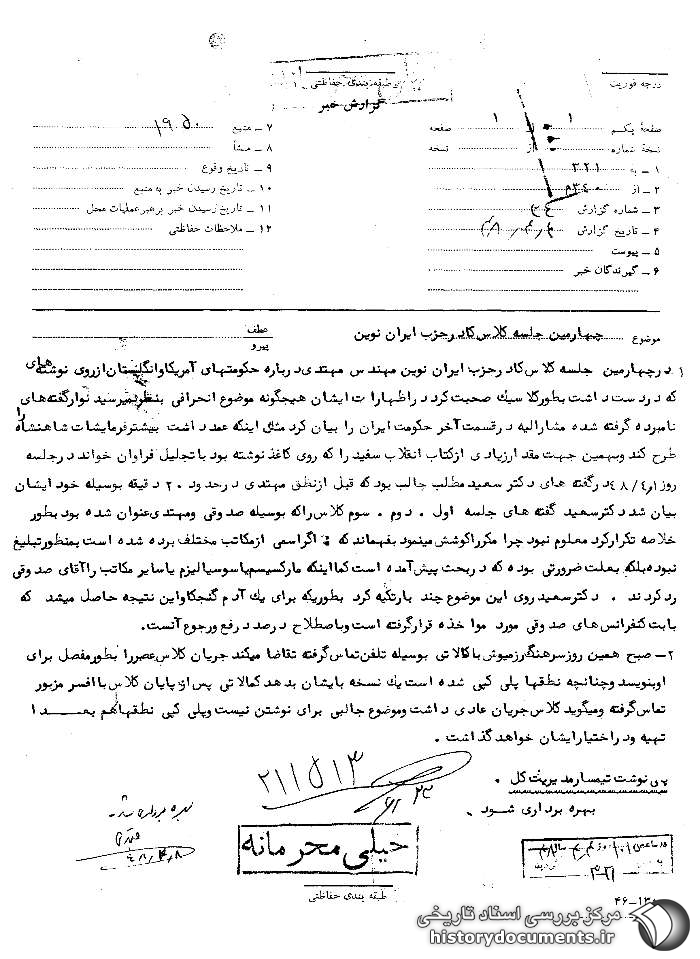 درجه فوریت
طبقه بندی حفاظتی
گزارش خبر
صفحهٔ یکم ۱ از ۱ صفحه
نسخهٔ شماره از نسخه
۱ ـ به ۳۲۱
۲ ـ از ۳۴۰م
۳ ـ شماره گزارش
۴ ـ تاریخ گزارش
۵ ـ پیوست
۶ ـ گیرندگان خبر
۷ ـ منبع ۱۹۵۰
۸ ـ منشأ
۹ ـ تاریخ وقوع
۱۰ ـ تاریخ رسیدن خبر به منبع
۱۱ ـ تاریخ رسیدن خبر برهبرعملیات محل
۱۲ ـ ملاحظات حفاظتی
موضوع چهارمین جلسه کلاس کادر حزب ایران نوین
عطف
پیرو
۱ درچهارمین جلسه کلاس کادر حزب ایران نوین مهندس مهتدی درباره حکومتهای آمریکا وانگلستان ازروی نوشته های
که در دست داشت بطورکلاسیک صحبت کرد در اظهارات ایشان هیچگونه موضوع انحرافی بنظر نمیرسید نوارگفته های
نامبرده گرفته شده مشارالیه در قسمت آخر حکومت ایران را بیان کرد مثل اینکه عمد داشت بیشتر فرمایشات شاهنشاه را
طرح کند وبهمین جهت مقدار زیادی ازکتاب انقلاب سفید را که روی کاغذ نوشته بود با تجلیل فراوان خواند درجلسه
روز ۴۸/۴/۱ در گفته های دکتر سعید مطلب جالب بود که قبل ازنطق مهتدی در حدود ۲۰ دقیقه بوسیله خود ایشان
بیان شد دکترسعید گفته های جلسه اول . دوم . سوم کلاس راکه بوسیله صدوقی ومهتدی عنوان شده بود بطور
خلاصه تکرار کرد معلوم نبود چرا مکررا کوشش مینمود بفهماند که : اگر اسمی ازمکاتب مختلف برده شده است بمنظور تبلیغ
نبوده بلکه بعلت ضرورتی بوده که در بحث پیش آمده است کما اینکه مارکسیسم یا سوسیالیزم یا سایر مکاتب را آقای صدوقی
رد کردند . دکترسعید روی این موضوع چند بار تکیه کرد بطوریکه برای یک آدم گنجکاو این نتیجه حاصل میشد که
بابت کنفرانس های صدوقی مورد مواخذه قرارگرفته است وباصطلاح درصدد رفع ورجوع آنست.
۲ـ صبح همین روز سرهنگ رزمیوش با کمالاتی بوسیله تلفن تماس گرفته تقاضا میکند جریان کلاس عصر را بطور مفصل برای
او بنویسد وچنانچه نطقها پلی کپی شده است یک نسخه بایشان بدهد کمالاتی پس از پایان کلاس با افسر مزبور
تماس گرفته ومیگوید کلاس جریان عادی داشت وموضوع جالبی برای نوشتن نیست وپلی کپی نطقها هم بعدا
تهیه ودر اختیار ایشان خواهد گذاشت .
پی نوشت تیمسار مدیریت کل .
بهره برداری شود .
۲۱۱۵۱۳
بهره برداری شد.
۴۸/۴/۸
خیلی محرمانه
طبقه بندی حفاظتی
مرکز بررسی اسناد تاریخی
historydocuments.ir